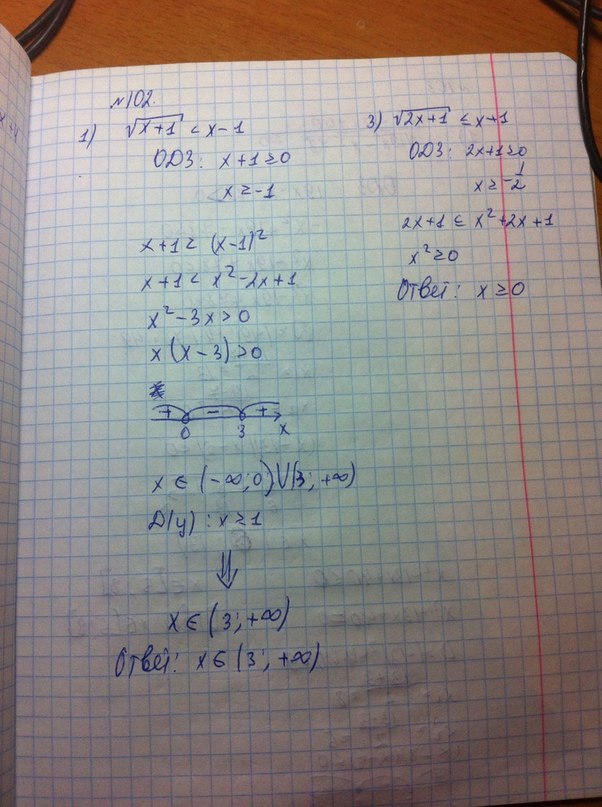 №102.
1) √x+1 < x-1
ОДЗ: x+1≥0
x≥-1
x+1< (x-1)²
x+1< x²-2x+1
x²-3x>0
x(x-3)>0
+ - +
0 3 x
x ∈ (-∞;0)∪(3; +∞)
D(y): x≥1
⇓
x∈(3; +∞)
Ответ: x∈(3; +∞)
3) √2x+1 ≤ x+1
ОДЗ: 2x+1≥0
x≥-1/2
2x+1≤ x²+2x+1
x²≥0
Ответ: x≥0